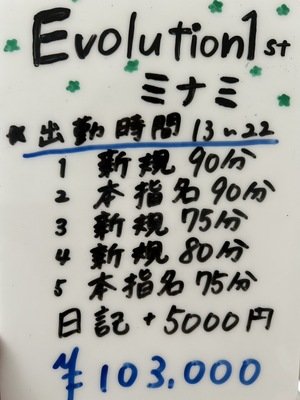 Evolution1st
ミナミ
* 出勤時間 13~22
1 新規 90分
2 本指名 90分
3 新規 75分
4 新規 80分
5 本指名 75分
日記 + 5000円
¥103,000